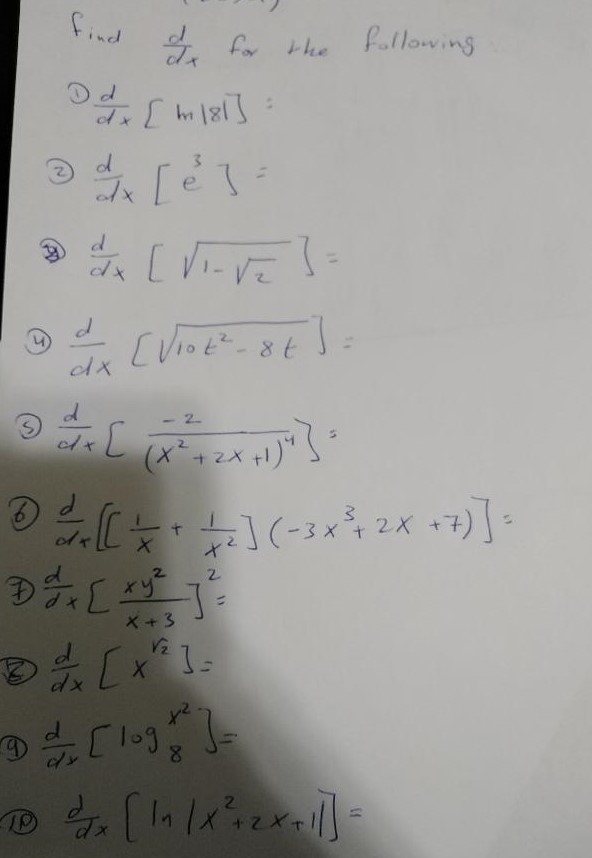 find d/dx for the following
① d/dx [ln|8|] =
② d/dx [e³] =
③ d/dx [√(1-√2)] =
④ d/dx [√(10t² - 8t)] =
⑤ d/dx [-2/(x²+2x+1)⁴] =
⑥ d/dx [[1/x + 1/x²](-3x³+2x+7)] =
⑦ d/dx [xy²/(x+3)]² =
⑧ d/dx [x^√2] =
⑨ d/dx [log₈ x²] =
⑩ d/dx [ln|x²+2x+1|] =